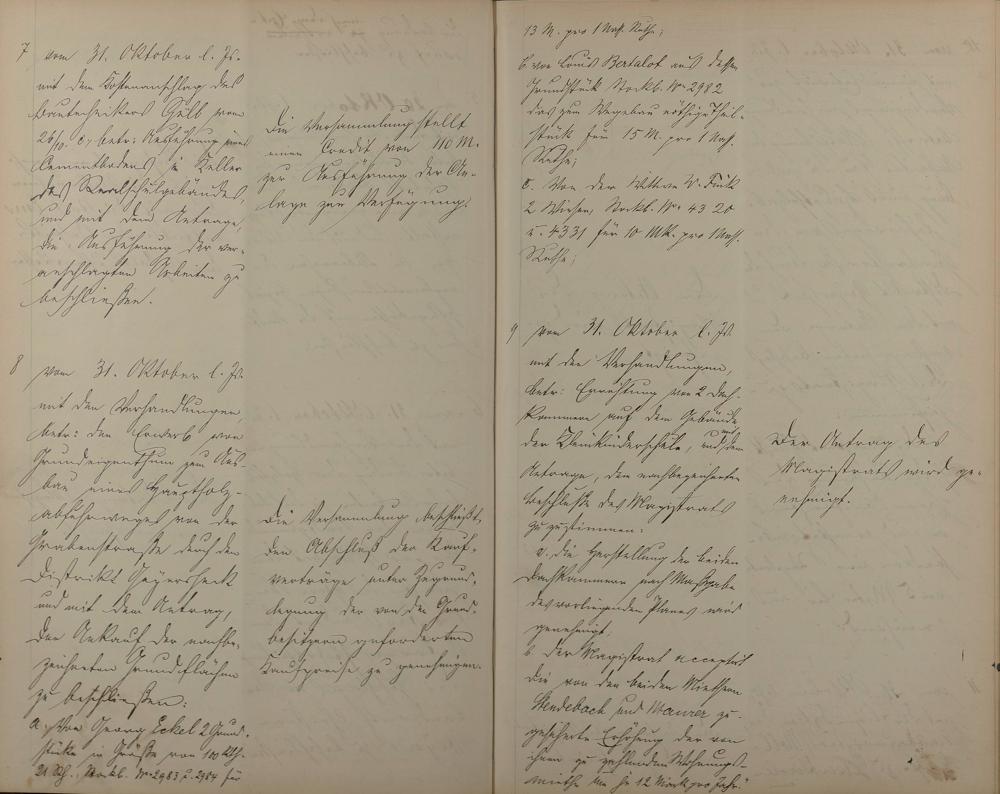 7 vom 31. Oktober l. Js.
mit dem Kostenanschlag des
Bautechnikers Gülb vom
26/10. c., betr: Ausführung eines
Cementbodens im Keller
des Realschulgebäudes,
und mit dem Antrage,
die Ausführung der ver-
anschlagten Arbeiten zu
beschließen.
Die Versammlung stellt
einen Credit von 110 M.
zur Ausführung der An-
lage zur Verfügung.
8 vom 31. Oktober l. Js.
mit den Verhandlungen,
betr: den Erwerb von
Grundeigenthum zum Aus-
bau eines Hauptholz-
abfuhrweges von der
Grabenstraße durch den
Distrikt Geyersheck
und mit dem Antrag,
den Ankauf der nachbe-
zeichneten Grundflächen
zu beschließen:
a. Von Georg Eckel 2 Grund-
stücke in Größe von 100 Rth.
21 Sch., Stockb. No 2983 u. 2984 für
Die Versammlung beschließt,
den Abschluß der Kauf-
verträge unter Zugrund-
legung der von den Grund-
besitzern geforderten
Kaufpreise zu genehmigen.
13 M. pro 1 Nass. Ruthe;
b. von Louis Bertalot aus dessen
Grundstück Stockb. No 2982
das zum Wegebau nöthige Theil-
stück für 15 M. pro 1 Nass.
Ruthe;
c. Von der Wittwe W. Fink
2 Wiesen, Stockb. No 4320
u. 4331 für 10 Mk. pro 1 Nass.
Ruthe;
9 vom 31. Oktober l. Js.
mit den Verhandlungen,
betr: Errichtung von 2 Dach-
kammern auf dem Gebäude
der Kleinkinderschule, und mit dem
Antrage, den nachbezeichneten
Beschlüssen des Magistrats
zuzustimmen:
a. die Herstellung der beiden
Dachkammern nach Maßgabe
des vorliegenden Planes wird
genehmigt.
b. Der Magistrat acceptirt
die von den beiden Miethern
Wendebach und Maurer zu-
gesicherte Erhöhung der von
ihnen zu zahlenden Wohnungs-
miethe um je 12 Mark pro Jahr."
Der Antrag des
Magistrats wird ge-
nehmigt.